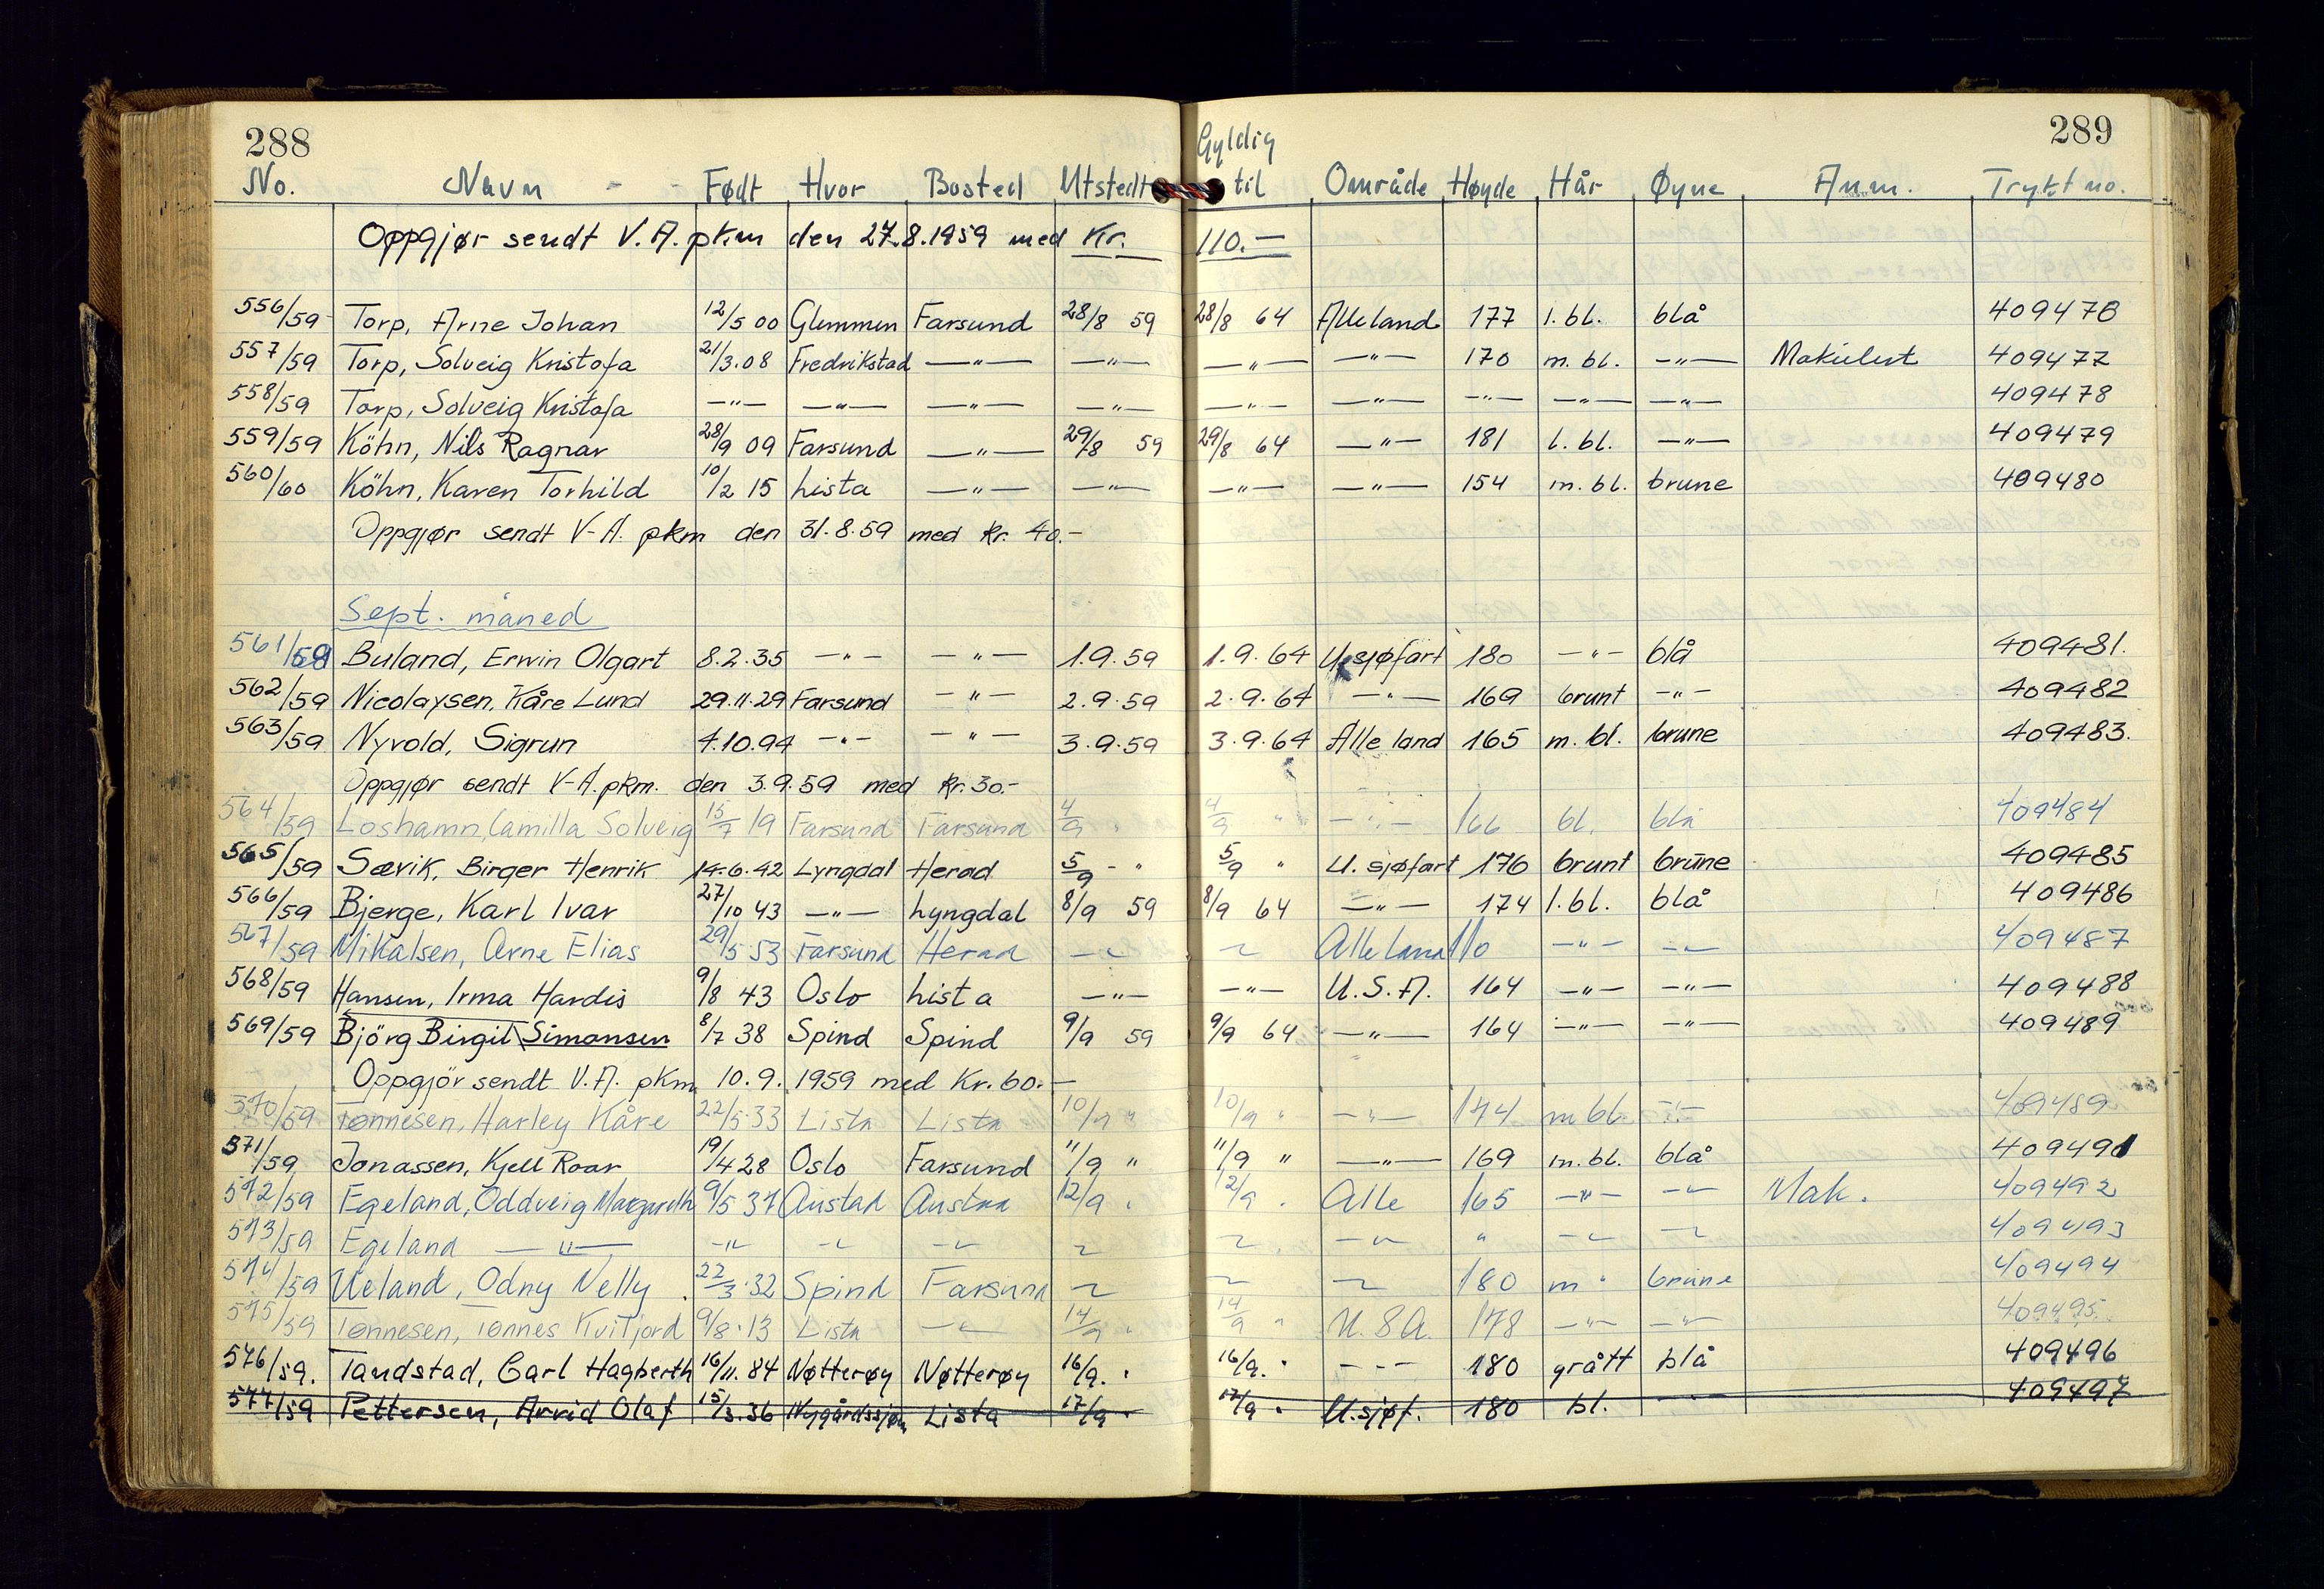 288
289
Gyldig
No. Navn - - Født Hvor Bosted Utstedt til Område Høyde Hår Øyne Anm. Trykt no.
Oppgjør sendt V.A. pkm den 27.8.1959 med Kr. 110.—
556/59 Torp, Arne Johan 12/5 00 Glemmen Farsund 28/8 59 28/8 64 Alle land 177 l. bl. blå 409476
557/59 Torp, Solveig Kristofa 21/3.08 Fredrikstad —"— —"— —"— —"— 170 m. bl. —"— Makulert 409477
558/59 Torp, Solveig Kristofa —"— —"— —"— —"— —"— —"— —"— —"— —"— 409478
559/59 Köhn, Nils Ragnar 28/9 09 Farsund —"— 29/8 59 29/8 64 —"— 181 l. bl. —"— 409479
560/60 Köhn, Karen Torhild 10/2 15 Lista —"— —"— —"— —"— 154 m. bl. brune 409480
Oppgjør sendt V-A. pkm den 31.8.59 med kr. 40.-
Sept. måned
561/59 Buland, Erwin Olgart 8.2.35 —"— —"— 1.9.59 1.9.64 U. sjøfart 180 —"— blå 409481.
562/59 Nicolaysen, Kåre Lund 29.11.29 Farsund —"— 2.9.59 2.9.64 —"— 169 brunt —"— 409482
563/59 Nyvold, Sigrun 4.10.94 —"— —"— 3.9.59 3.9.64 Alle land 165 m. bl. brune 409483.
Oppgjør sendt V-A. pkm. den 3.9.59 med kr. 30.-
564/59 Loshamn, Camilla Solveig 15/7 19 Farsund Farsund 4/9 " 4/9 " —"— 166 bl. blå 409484
565/59 Sævik, Birger Henrik 14.6.42 Lyngdal Herad 5/9 - " 5/9 " U. sjøfart 176 brunt brune 409485
566/59 Bjerge, Karl Ivar 27/10 43 —"— Lyngdal 8/9 59 8/9 64 —"— 174 l. bl. blå 409486
567/59 Mikalsen, Arne Elias 29/5 53 Farsund Herad —"— —"— Alle land 110 —"— —"— 409487
568/59 Hansen, Irma Hardis 9/8 43 Oslo Lista —"— —"— U.S.A. 164 —"— —"— 409488
569/59 Björg Birgit Simonsen 8/7 38 Spind Spind 9/9 59 9/9 64 —"— 164 —"— —"— 409489
Oppgjör sendt V.A. pkm 10.9. 1959 med Kr. 60.—
570/59 Tønnesen, Harley Kåre 22/5.33 Lista Lista 10/9 " 10/9 " —"— 174 m bl. —"— 409489
571/59 Jonassen, Kjell Roar 19/4 28 Oslo Farsund 11/9 " 11/9 " —"— 169 m. bl. blå 409491
572/59 Egeland, Oddveig Margareth 9/5 37 Austad Austad 12/9 " 12/9 " Alle 165 —"— —"— Mak. 409492
573/59 Egeland —"— —"— —"— —"— —"— —"— —"— " —"— —"— 409493
574/59 Ueland, Odny Nelly 22/3.32 Spind Farsund —"— —"— —"— 180 m " brune 409494
575/59 Tønnesen, Tønnes Kvitfjord 9/8.13 Lista —"— 14/9 " 14/9 " U.S.A. 178 —"— —"— 409495.
576/59. Tandstad, Carl Hagberth 16/11.84 Nøtterøy Nøtterøy 16/9. " 16/9. " - - - 180 grått blå 409496
577/59 Pettersen, Arvid Olaf 15/3.36 Lista 17/9 " 17/9 " U.sjøf. 180 bl. —"— 409497